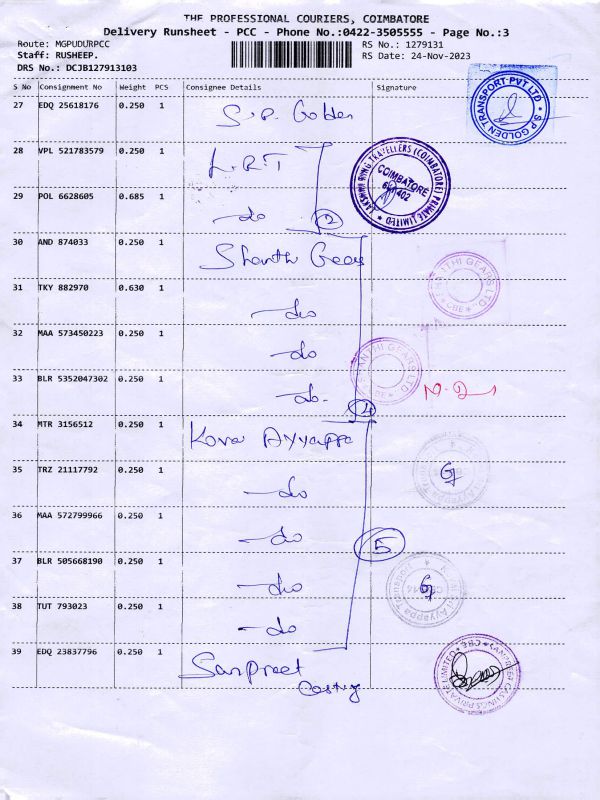 THE PROFESSIONAL COURIERS, COIMBATORE
Delivery Runsheet - PCC - Phone No.:0422-3505555 - Page No.:3
Route: MGPUDURPCC RS No.: 1279131
Staff: RUSHEEP. RS Date: 24-Nov-2023
DRS No.: DCJB127913103
S No Consignment No Weight PCS Consignee Details Signature
27 EDQ 25618176 0.250 1 S.P. Golden
S.P GOLDEN TRANSPORT PVT LTD
28 VPL 521783579 0.250 1 L.R.T
TRAVELLERS (COIMBATORE) PRIVATE LIMITED
COIMBATORE
29 POL 6628605 0.685 1 do 2
30 AND 874033 0.250 1 Shanthi Gears
GEARS LTD
CBE
31 TKY 882970 0.630 1 do
32 MAA 573450223 0.250 1 do
33 BLR 5352047302 0.250 1 do. 4
GEARS LTD
34 MTR 3156512 0.250 1 Kovai Ayyappa
35 TRZ 21117792 0.250 1 do
36 MAA 572799966 0.250 1 do 5
37 BLR 505668190 0.250 1 do
Ayyappa Transport
38 TUT 793023 0.250 1 do
39 EDQ 23837796 0.250 1 Sanpreet
CASTINGS PRIVATE LIMITED
CBE